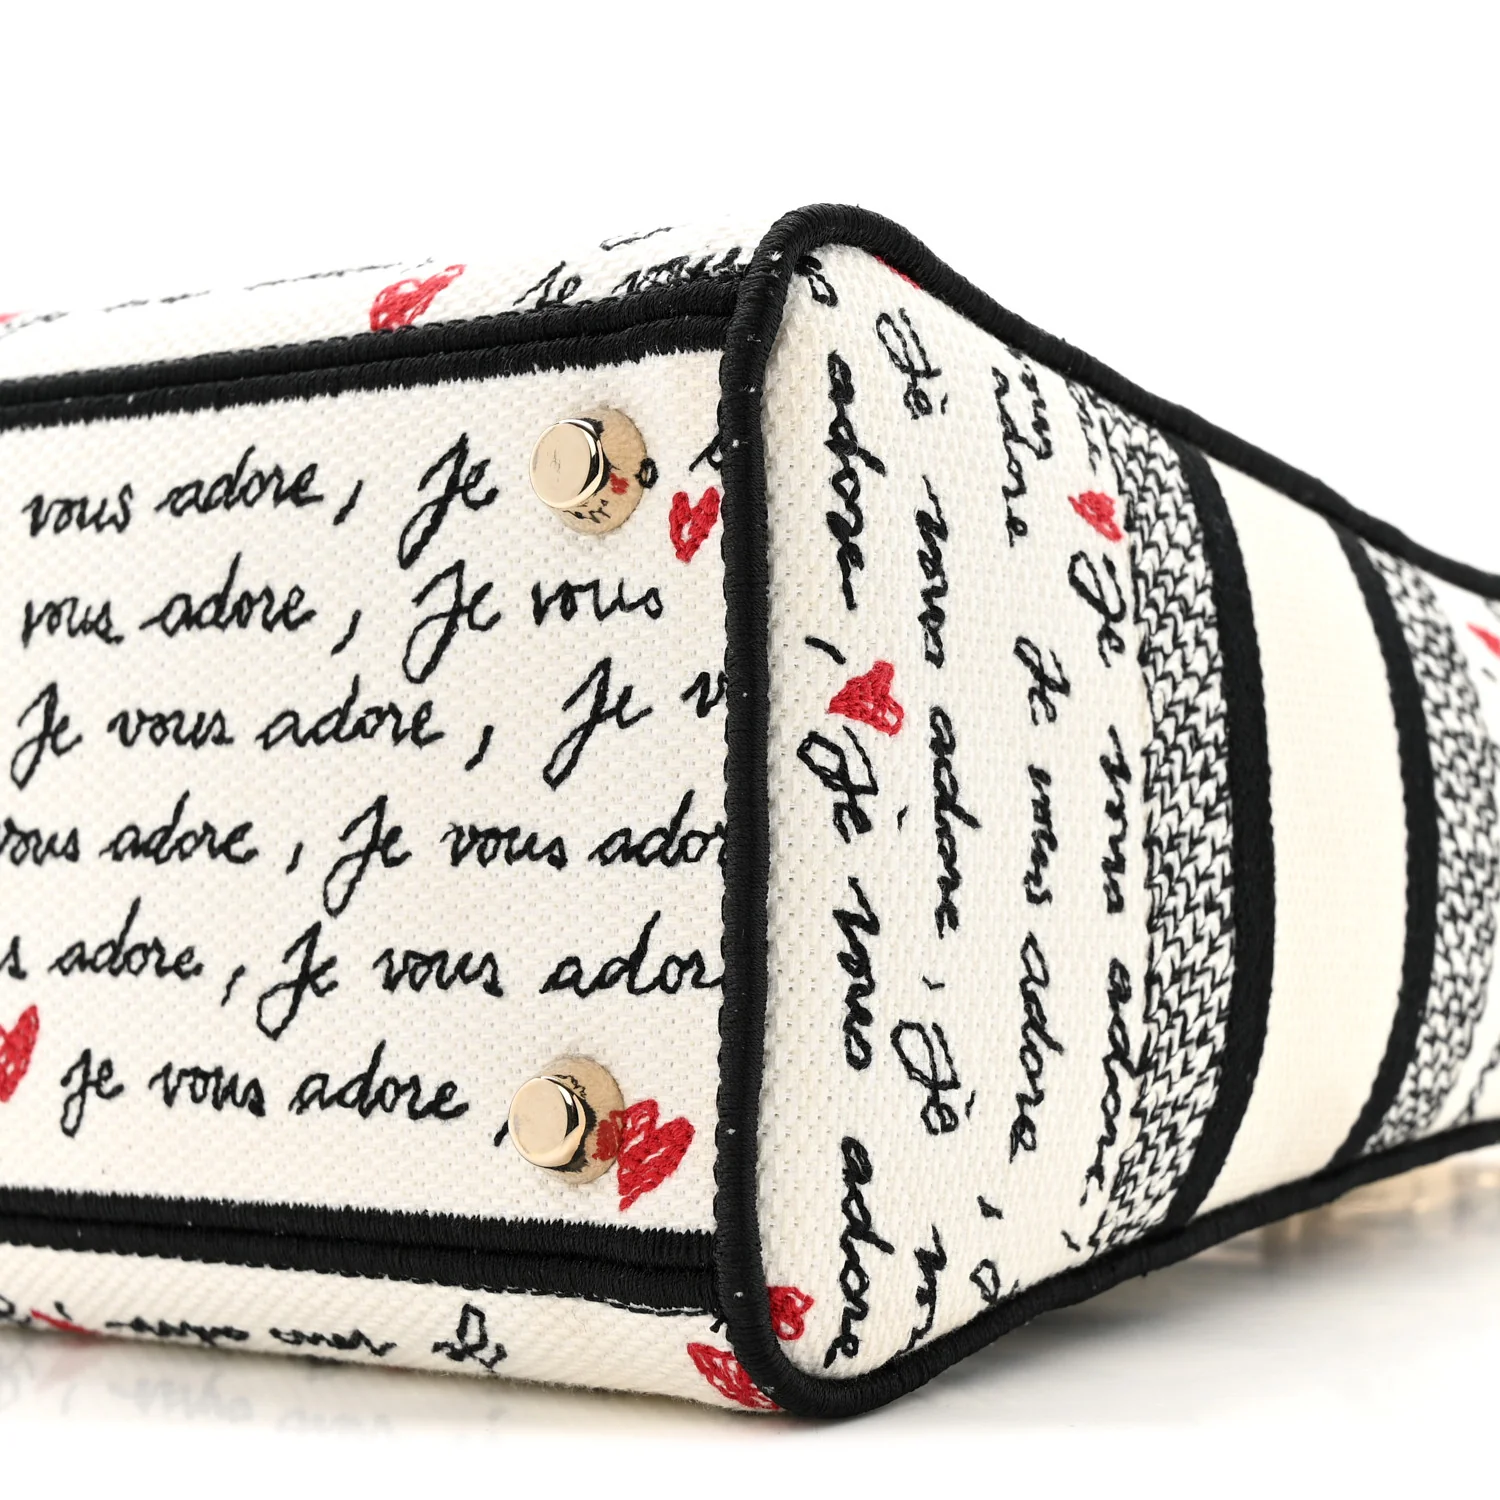 Je vous
vous adore, Je
vous adore, Je vous
Je vous adore, Je
vous adore, Je vous
adore, Je vous
Je vous adore,
adore, Je vous adore
Je vous adore, Je
adore Je vous adore
Je vous adore,